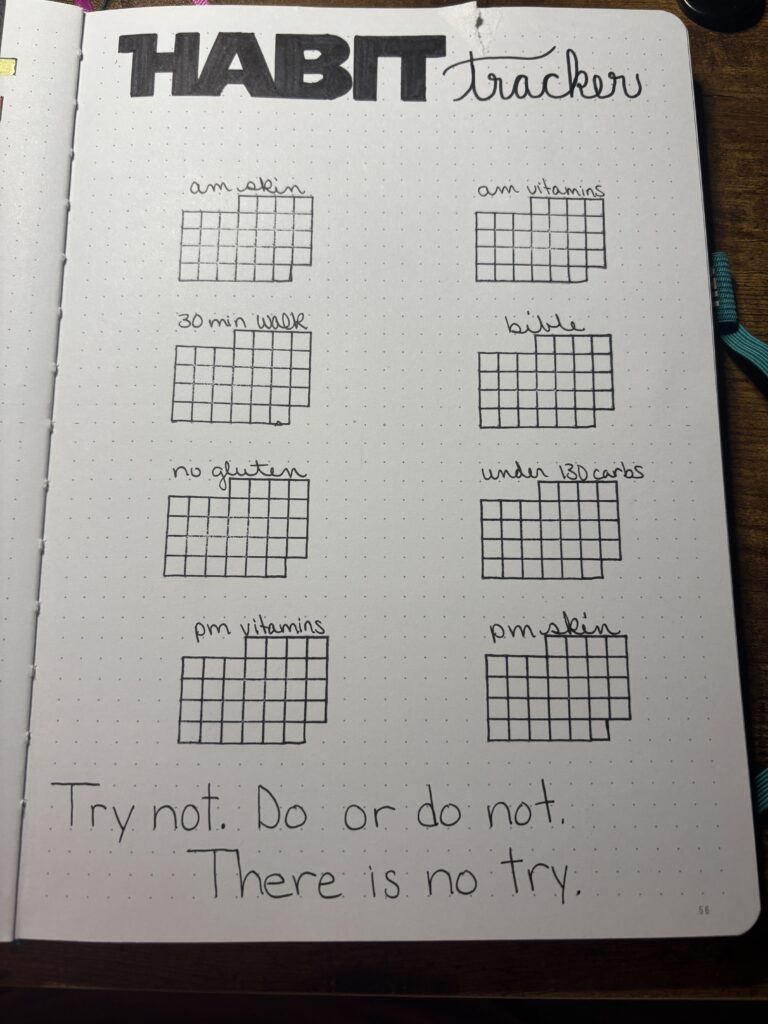 HABIT tracker
am skin
am vitamins
30 min walk
bible
no gluten
under 130 carbs
pm vitamins
pm skin
Try not. Do or do not.
There is no try.
56